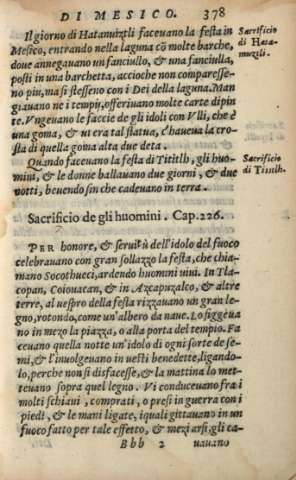 DI MESICO. 378
Il giorno di Hatamuztli faceuano la festa in
Mesico, entrando nella laguna cõ molte barche,
doue annegauano un fanciullo, & una fanciulla,
posti in una barchetta, accioche non comparesse-
no piu, ma si stesseno con i Dei della laguna. Man
giauano ne i tempij, offeriuano molte carte dipin
te. Vngeuano le faccie de gli idoli con Vlli, che è
una goma, & ut era tal statua, c'haueua la cro-
sta di quella goma alta due deta.
Quando faceuano la festa di Tititli, gli huo-
mini, & le donne ballauano due giorni, & due
notti, beuendo sin che cadeuano in terra.
Sacrificio
di Hata-
muztli.
Sacrificio
di Tititli.
Sacrificio de gli huomini. Cap. 226.
PER honore, & seruitù dell'idolo del fuoco
celebrauano con gran sollazzo la festa, che chia-
mano Socothucci, ardendo huomini uiui. In Tla-
copan, Coiouacan, & in Azcapuzalco, & altre
terre, al uespro della festa rizzauano un gran le-
gno, rotondo, come un'albero da naue. Lo figgeua
no in mezo la piazza, o alla porta del tempio. Fa
ceuano quella notte un'idolo di ogni sorte de se-
mi, & l'inuolgeuano in uesti benedette, ligando-
lo, perche non si disfacesse, & la mattina lo met-
teuano sopra quel legno. Vi conduceuano fra i
molti schiaui, comprati, o presi in guerra con i
piedi, & le mani ligate, iquali gittauano in un
fuoco fatto per tale effetto, & mezi arsi, gli ca-
Bbb 2 uauano